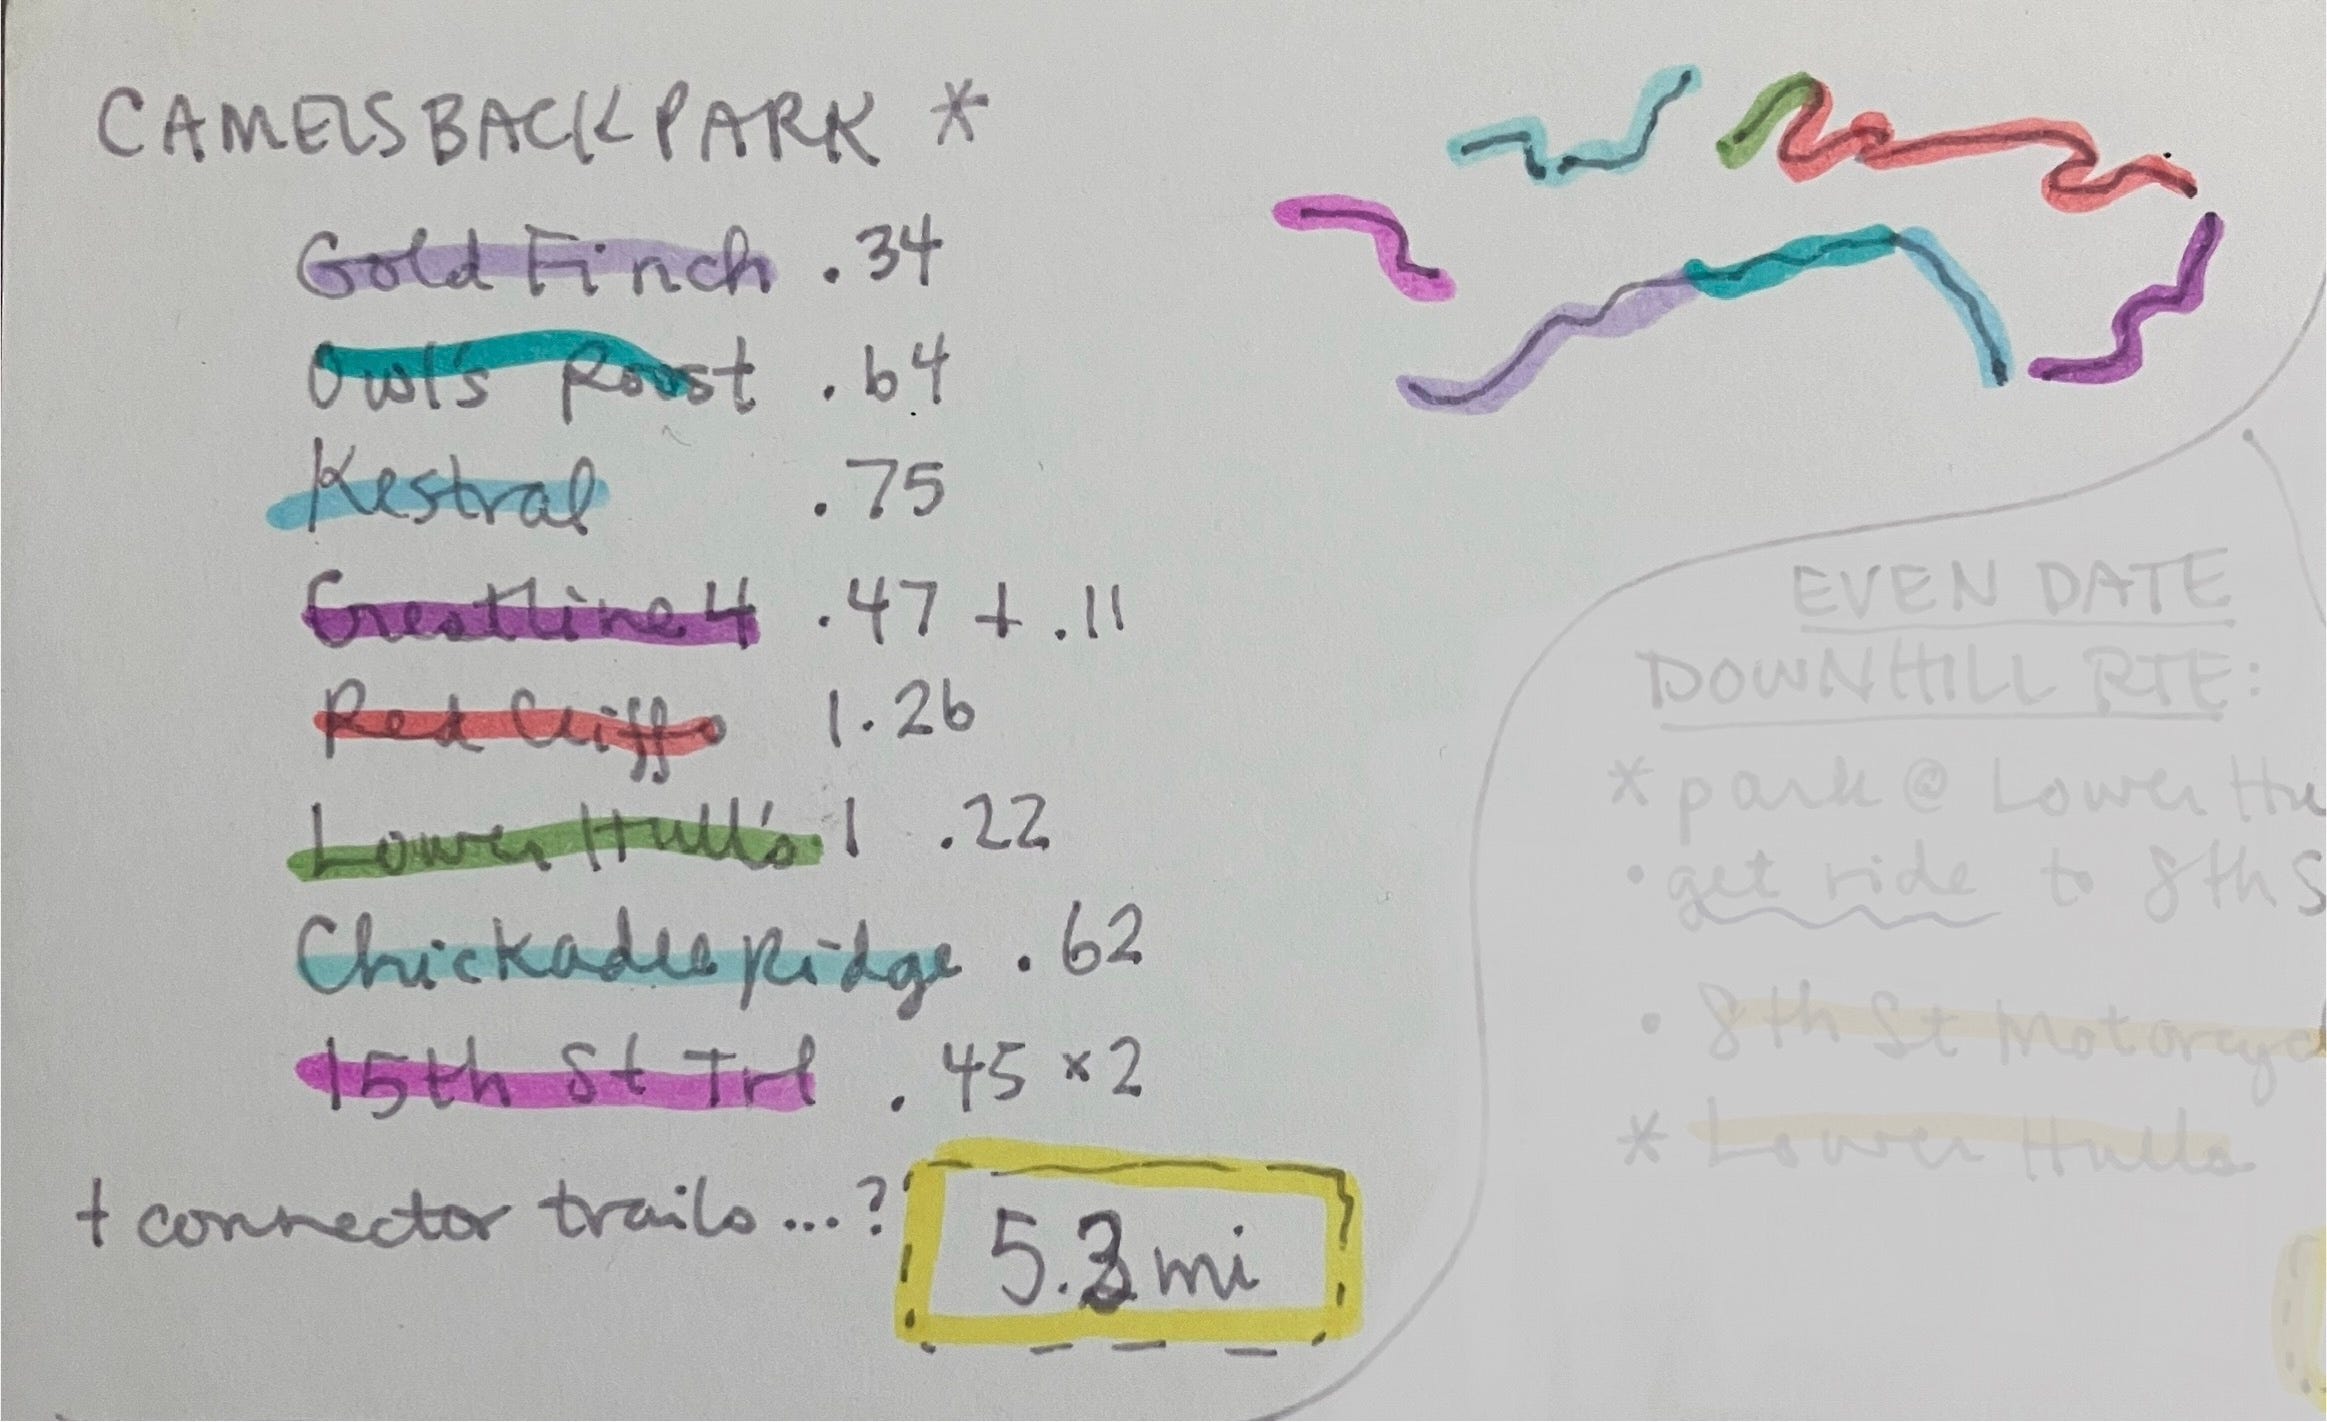 CAMELSBACK PARK *
Gold Finch .34
Owl's Roost .64
Kestral .75
Crestline 4 .47 + .11
Red Cliffs 1.26
Lower Hull's 1 .22
Chickadee Ridge .62
15th St Trl .45 x2
+ connector trails...? 5.3 mi
EVEN DATE
DOWNHILL RTE:
* park @ Lower Hu
• get ride to 8th S
• 8th St Motorcyc
* Lower Hulls